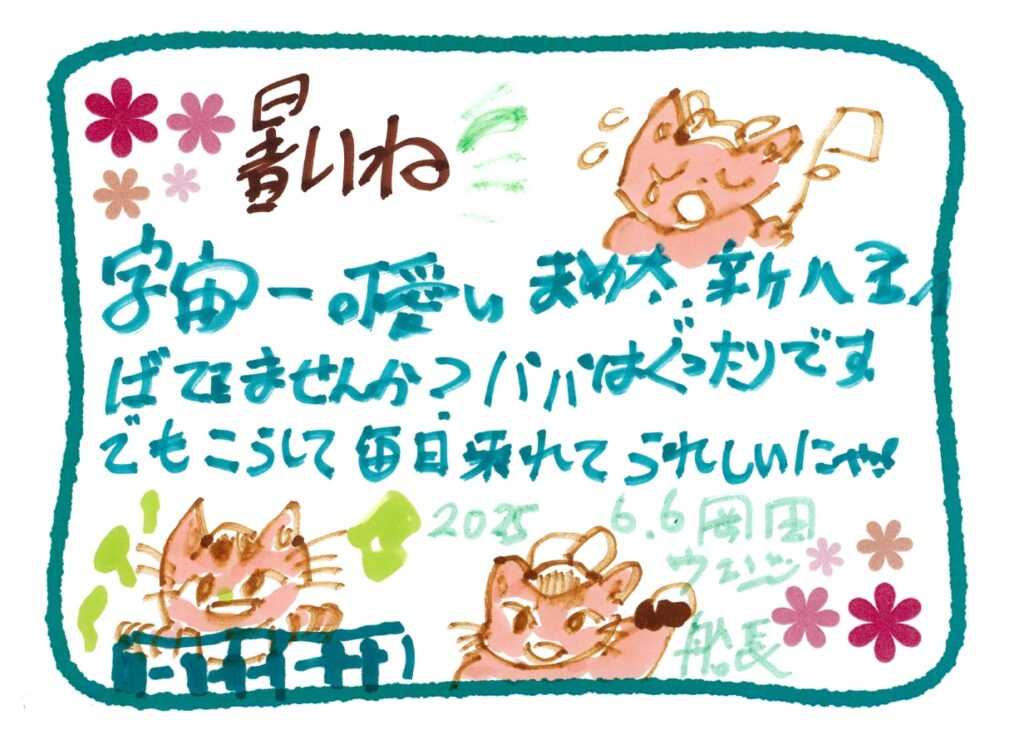 暑いね
宇宙一可愛い まめ大、新八ろん
ばてませんか?パパはぐったりです
でもこうして毎日乗れてうれしいにゃ!
2025 6.6 岡田
ウェジン
船長